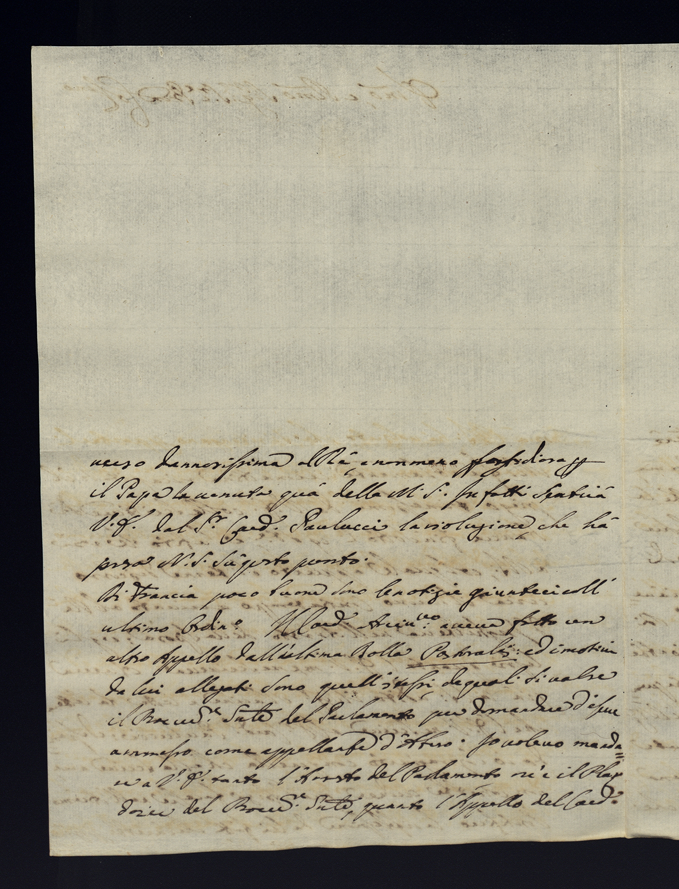 verso dannosissima al Rè, e non meno fastidiosa pp
il Papa la venuta quà della M. S. In fatti sentirà
V. E. dal Sr. Card. Paulucci la risoluzione, che hà
presa N. S. sù questo punto.
Di Francia poco buone sono le notizie giunteci coll'
ultimo Ordino. Il Card. Arciv.vo aveva fatto un
altro Appello dall'ultima Bolla Pastoralis: ed i motivi
da lui allegati sono quell'istessi, de quali si valse
il Procur. Gnle del Parlamento per domandare d'esser
ammesso come appellante d'Abuso. Io volevo manda=
re a V. E. tanto l'Aresto del Parlamento ov'è il
del Procur. Gnle, quanto l'Appello del Card.